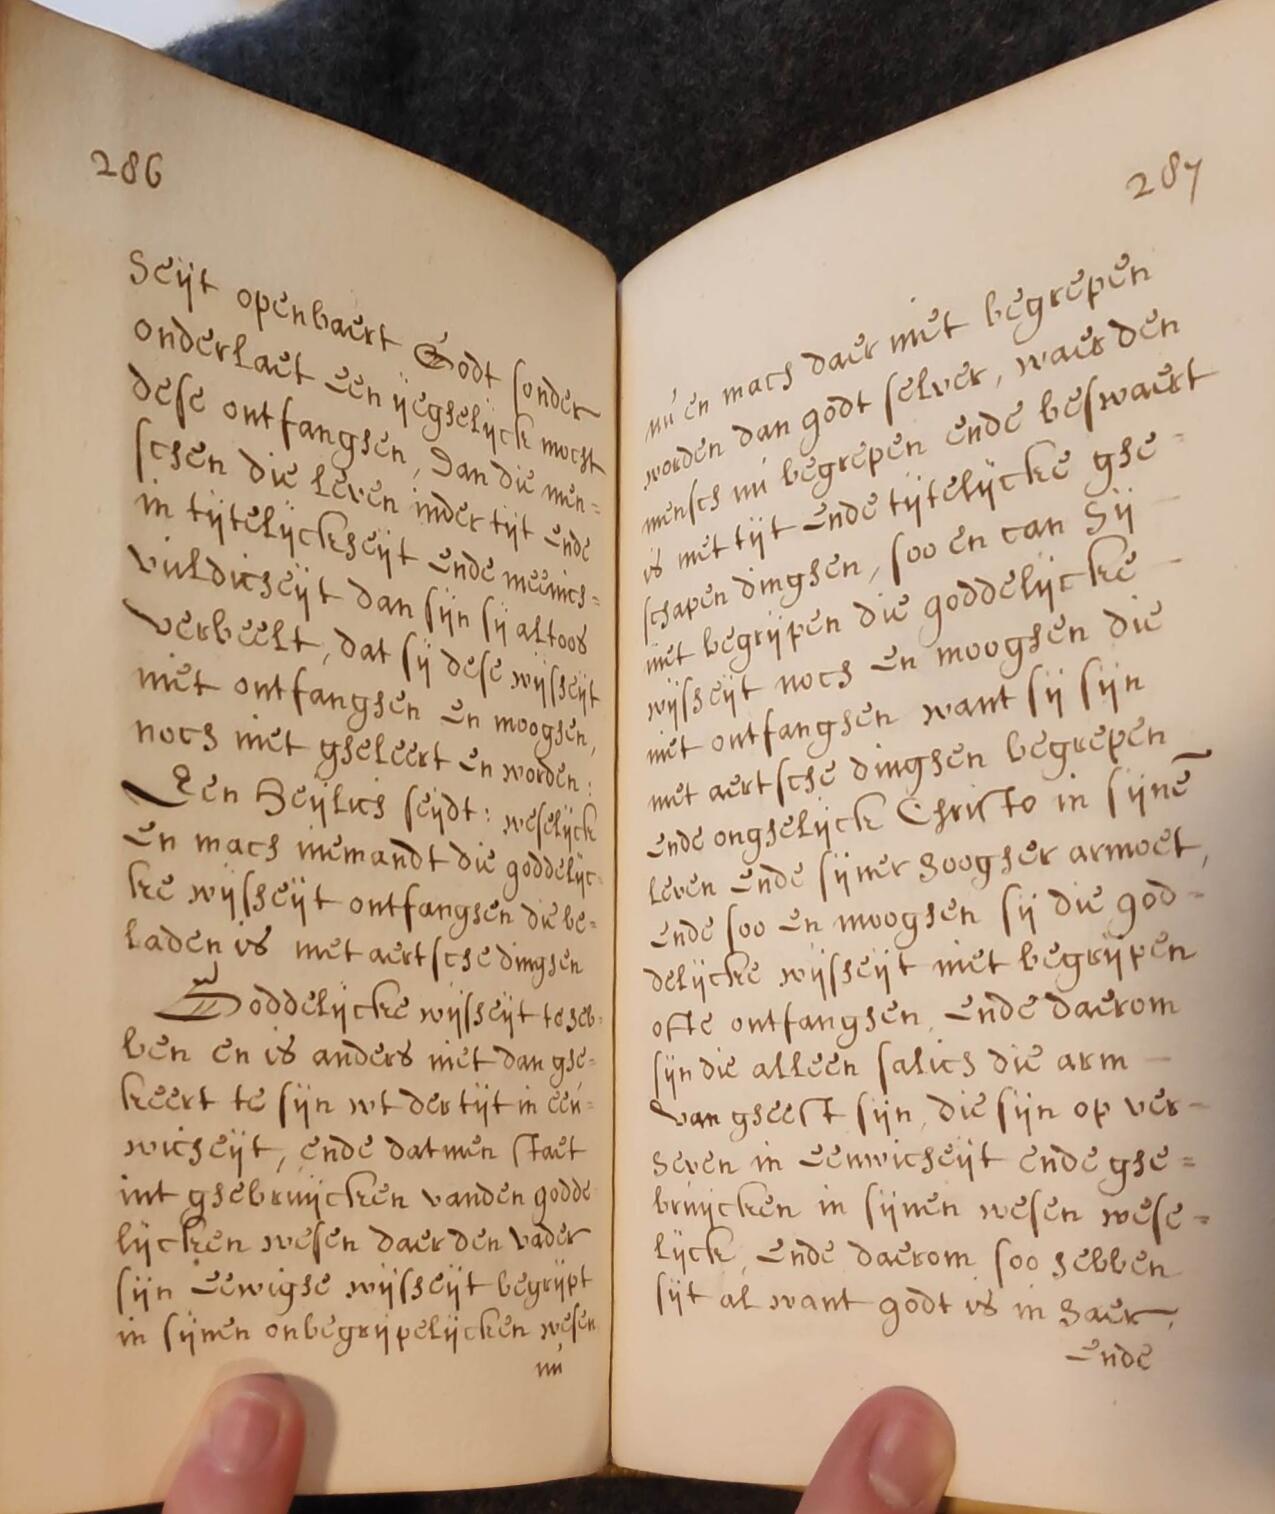 286
heÿt openbaert Godt sonder
onderlaet een ÿeghelÿck mocht
dese ontfanghen, dan die men=
schen die leven inder tÿt ende
in tÿtelÿckheÿt ende meenich=
vuldicheÿt dan sÿn sÿ altoos
verbeelt, dat sÿ dese wÿsheÿt
niet ontfanghen en mooghen,
noch niet gheleert en worden:
Een heÿlich seÿdt: weselÿck
en mach niemandt die goddelÿc=
ke wÿsheÿt ontfanghen die be=
laden is met aertsche dinghen
Goddelÿcke wÿsheÿt te heb=
ben en is anders niet dan ghe=
keert te sÿn wt der tÿt in eeu=
wicheÿt, ende datmen staet
int ghebruÿcken vanden godde
lÿcken wesen daer den vader
sÿn eewighe wÿsheÿt begrÿpt
in sÿnen onbegrÿpelÿcken wesen
nu
287
nu en mach daer niet begrepen
worden dan godt selver, waer den
mensch nu begrepen ende beswaert
is met tÿt ende tÿtelÿcke ghe=
schapen dinghen, soo en can hÿ
niet begrÿpen die goddelÿcke
wÿsheÿt noch en mooghen die
niet ontfanghen want sÿ sÿn
met aertsche dinghen begrepen
ende onghelÿck Christo in sÿnē
leven ende sÿner hoogher armoet,
ende soo en mooghen sÿ die god=
delÿcke wÿsheÿt niet begrÿpen
ofte ontfanghen, ende daerom
sÿn die alleen salich die arm
van gheest sÿn, die sÿn op ver=
heven in eenwicheÿt ende ghe=
bruÿcken in sÿnen wesen wese=
lÿck, ende daerom soo hebben
sÿt al want godt is in haer,
ende